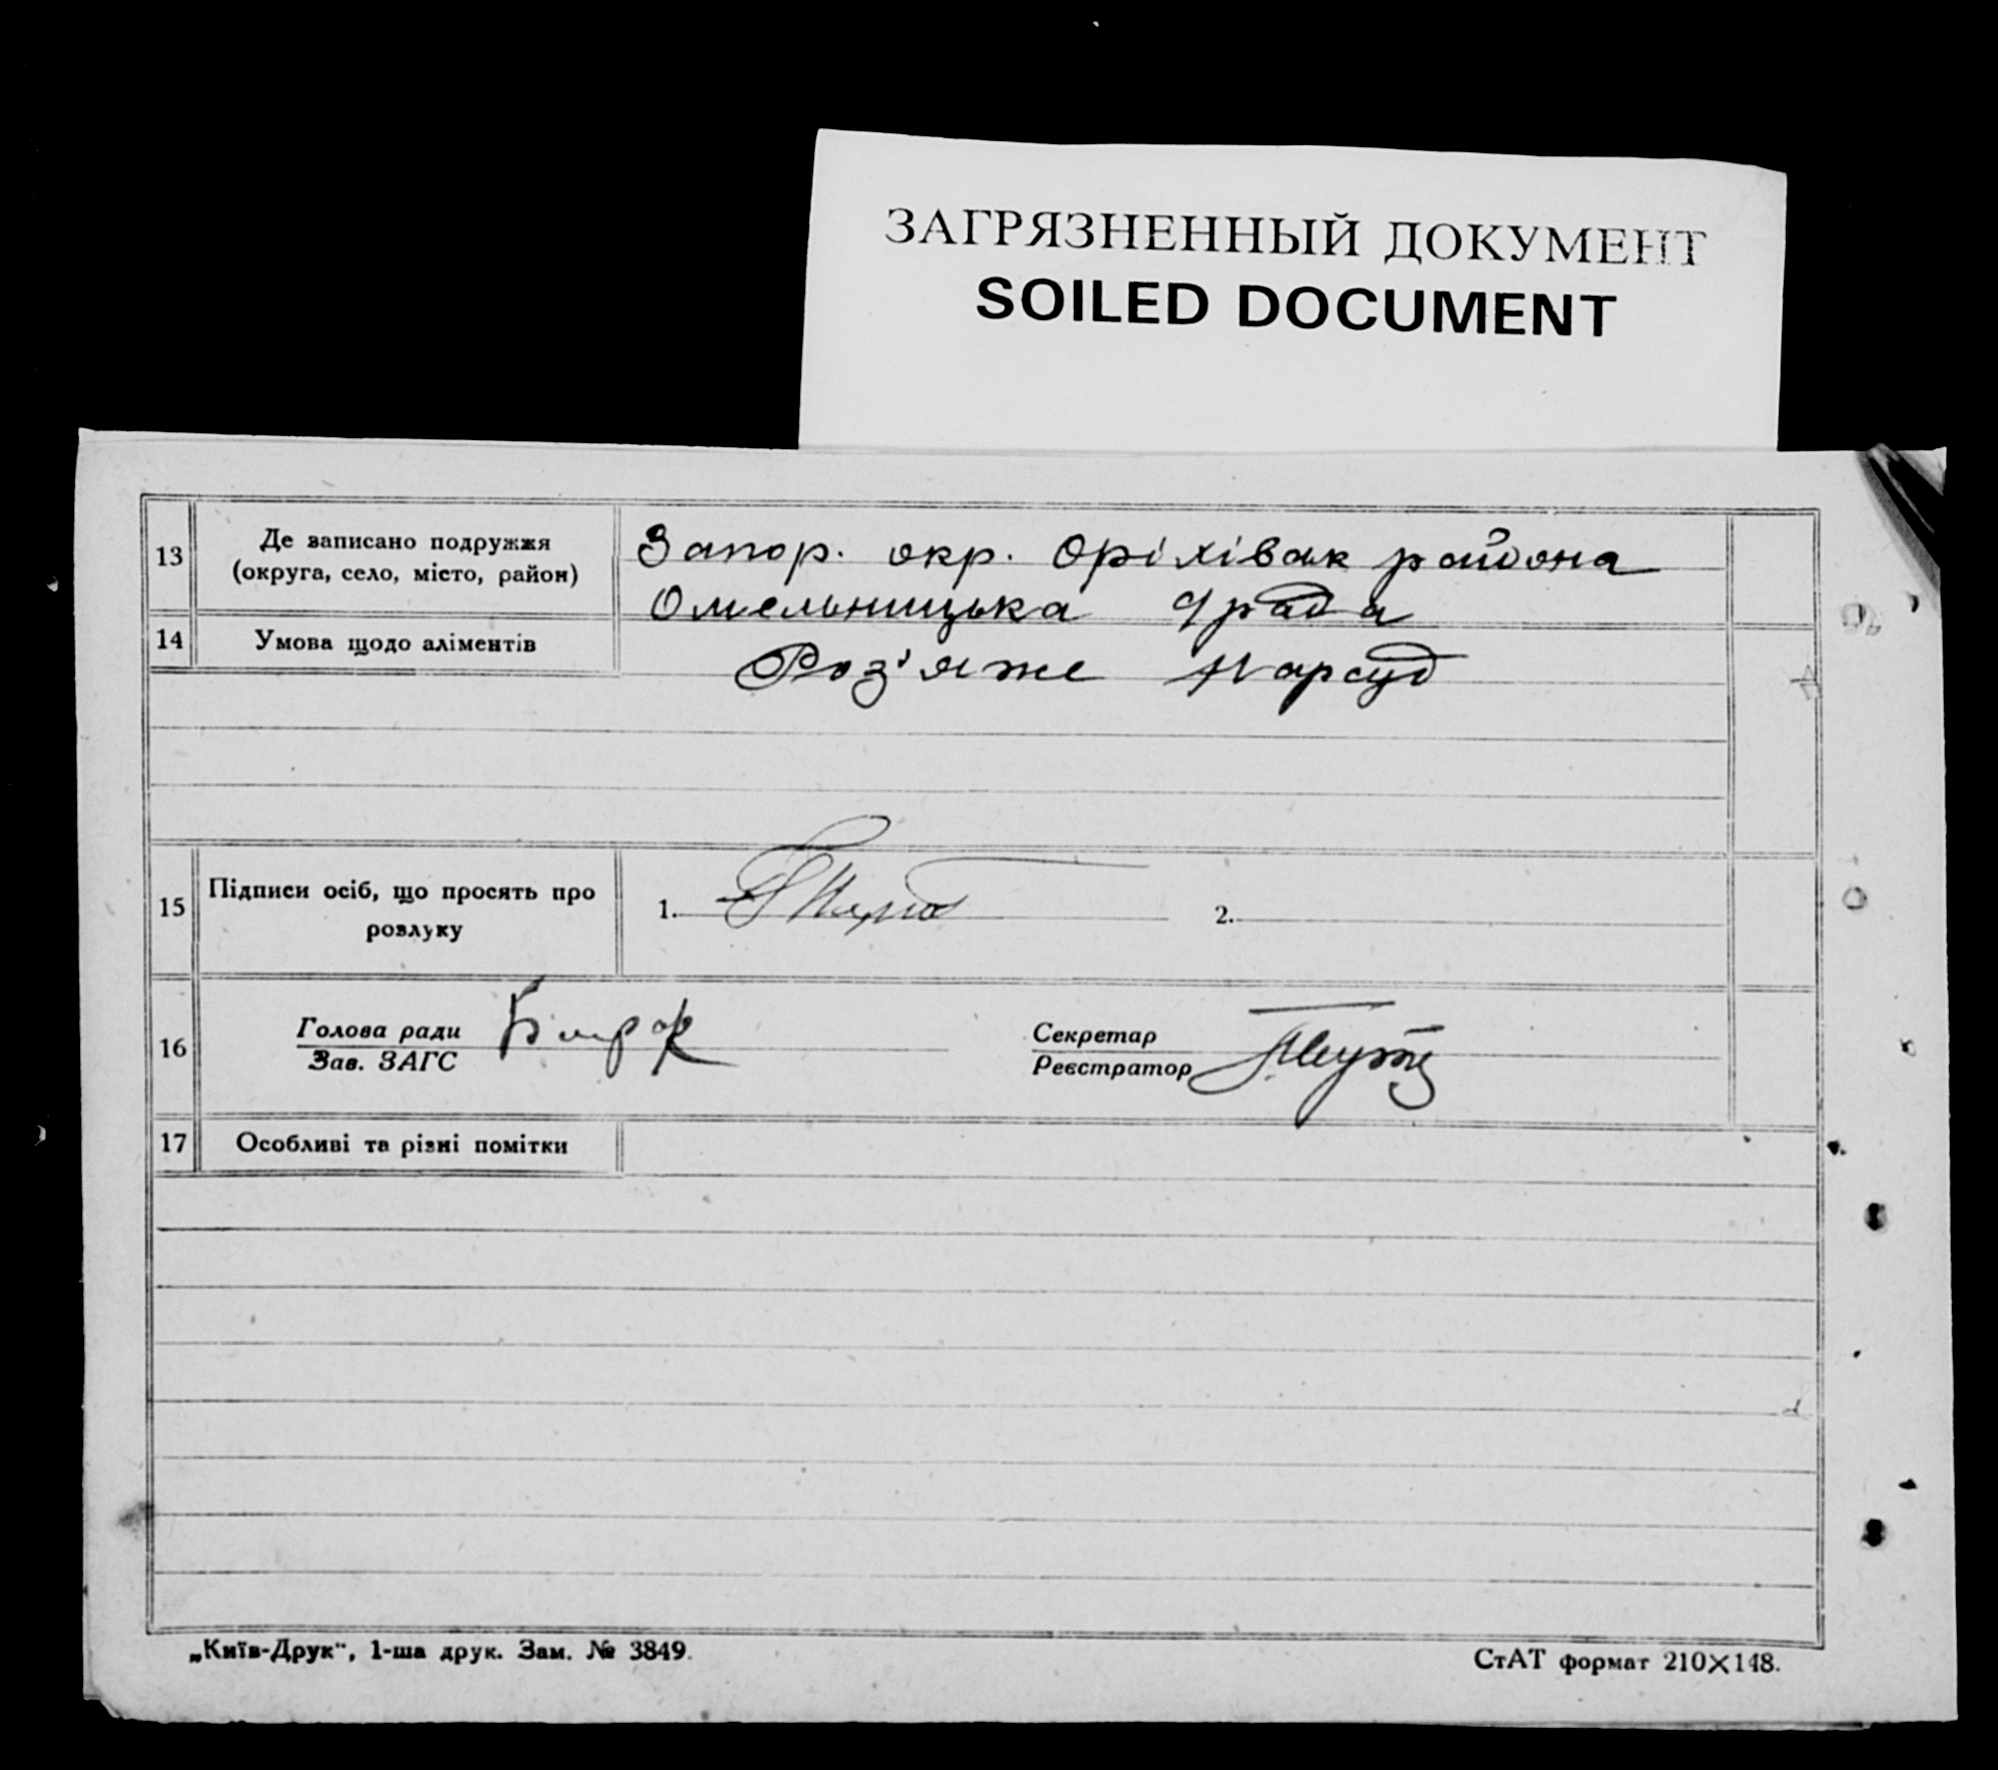 ЗАГРЯЗНЕННЫЙ ДОКУМЕНТ
SOILED DOCUMENT
13 Де записано подружжя
(округа, село, місто, район)
Запор. окр. Оріхівськ района
Омельницька рада
14 Умова щодо аліментів
Роз'яже Нарсуд
15 Підписи осіб, що просять про
розлуку
1. 2.
16 Голова ради
Зав. ЗАГС
Секретар
Реєстратор
17 Особливі та різні помітки
„Київ-Друк", 1-ша друк. Зам. № 3849.
СтАТ формат 210×148.